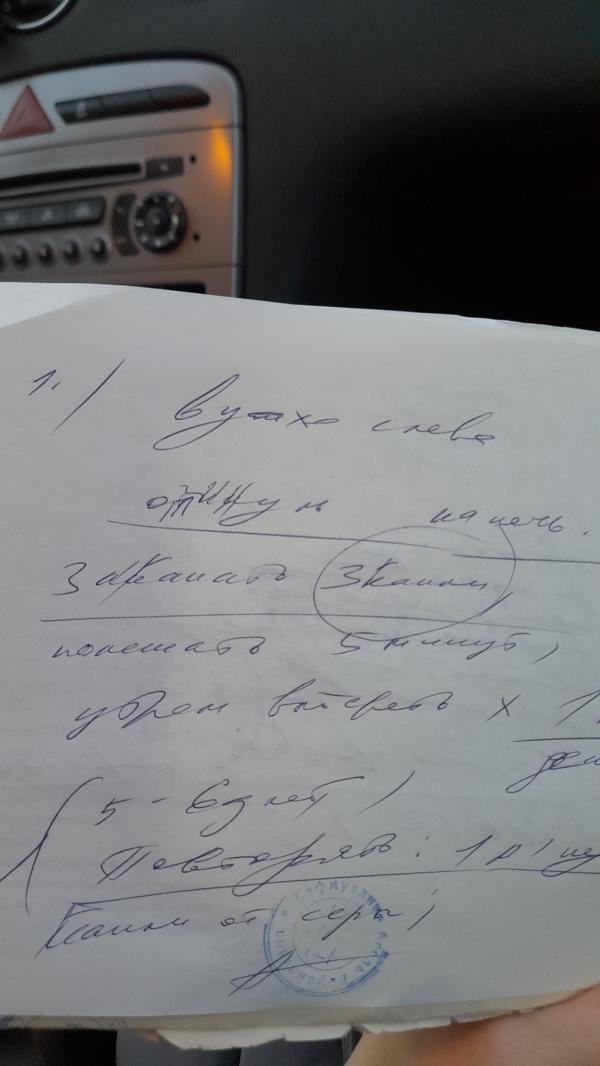 1.) в ухо слева
на ночь.
Закапать 3 капли,
полежать 5 минут,
утром вытереть х 1
5-6 дней,
Повторять: 1 р/
Капли от серы;